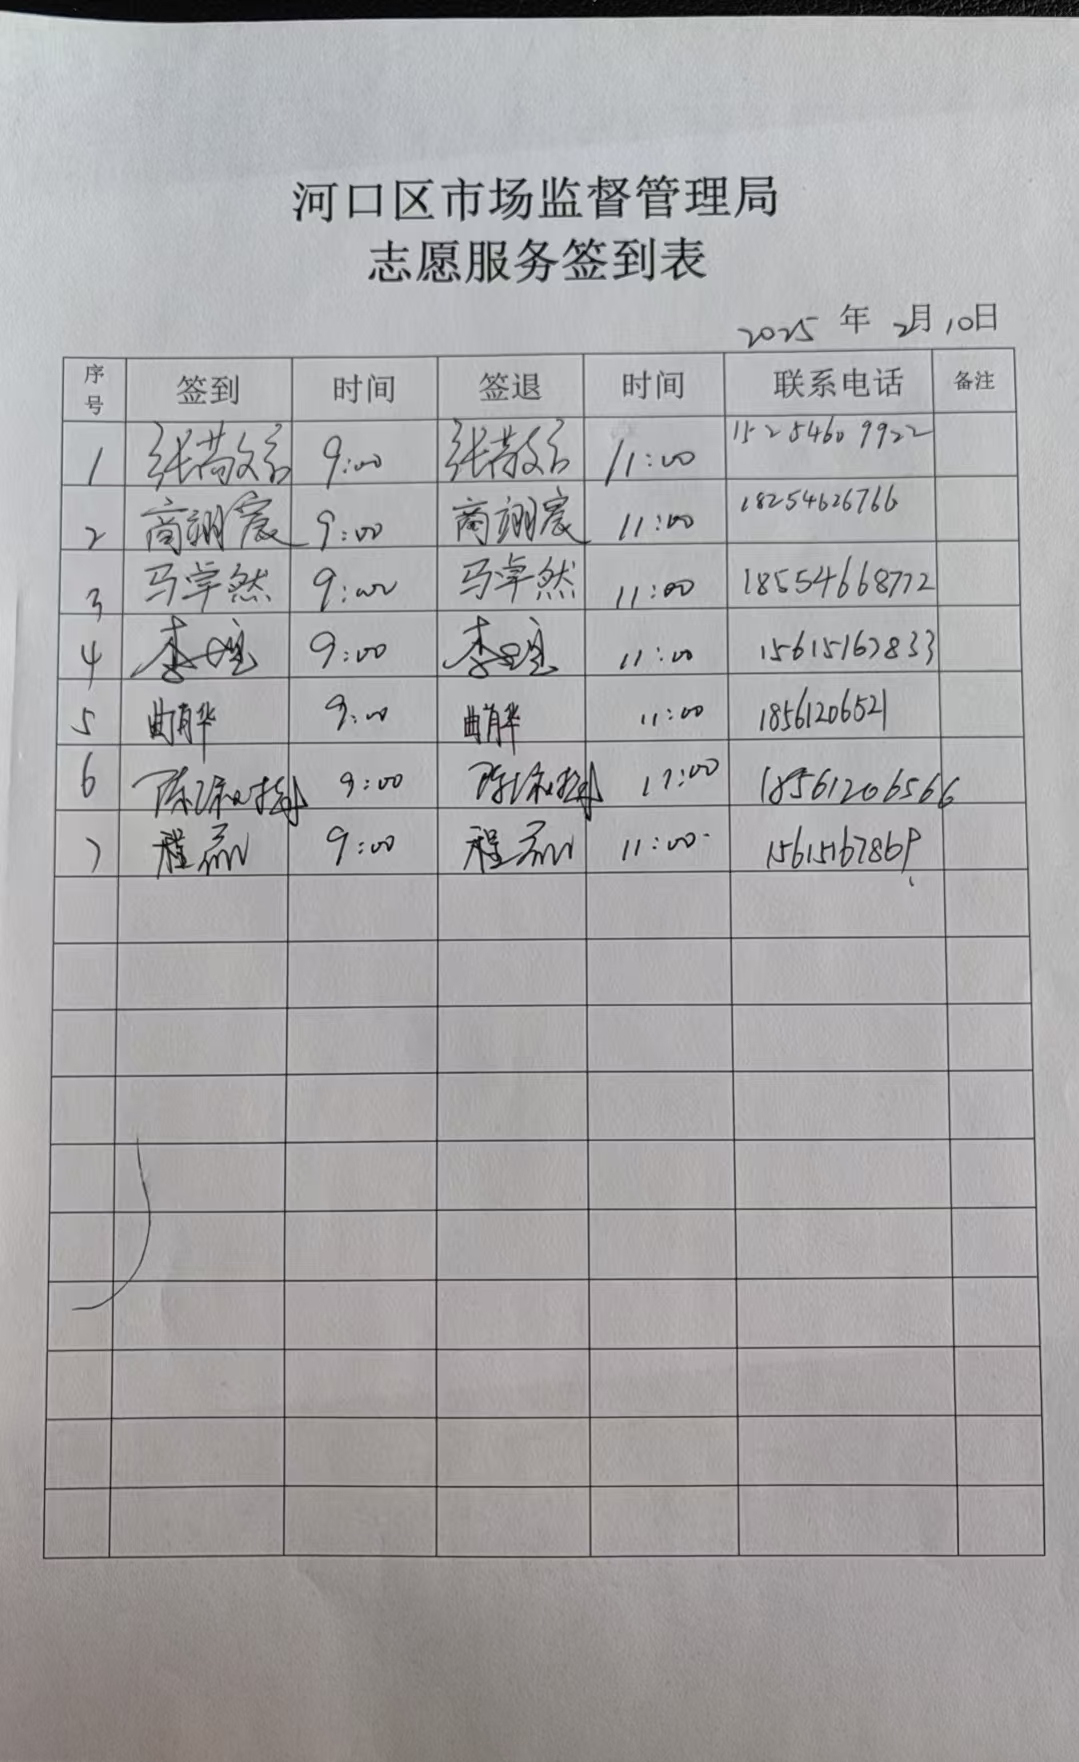 河口区市场监督管理局
志愿服务签到表
2025 年 2月10日
序号 签到 时间 签退 时间 联系电话 备注
1 张 9:00 张 11:00 15254609922
2 商翊宸 9:00 商翊宸 11:00 18254626766
3 马卓然 9:00 马卓然 11:00 18554668772
4 李 9:00 李 11:00 15615167833
5 曲肖华 9:00 曲肖华 11:00 18561206521
6 陈 9:00 陈 11:00 18561206566
7 程磊 9:00 程磊 11:00 15615167869